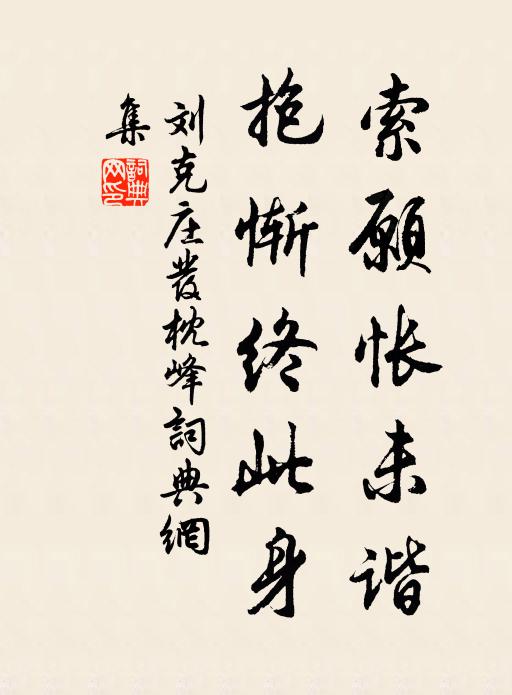 索愿怅未谐
抱惭终此身
刘克庄發枕峰詞典網
集
詞典網印